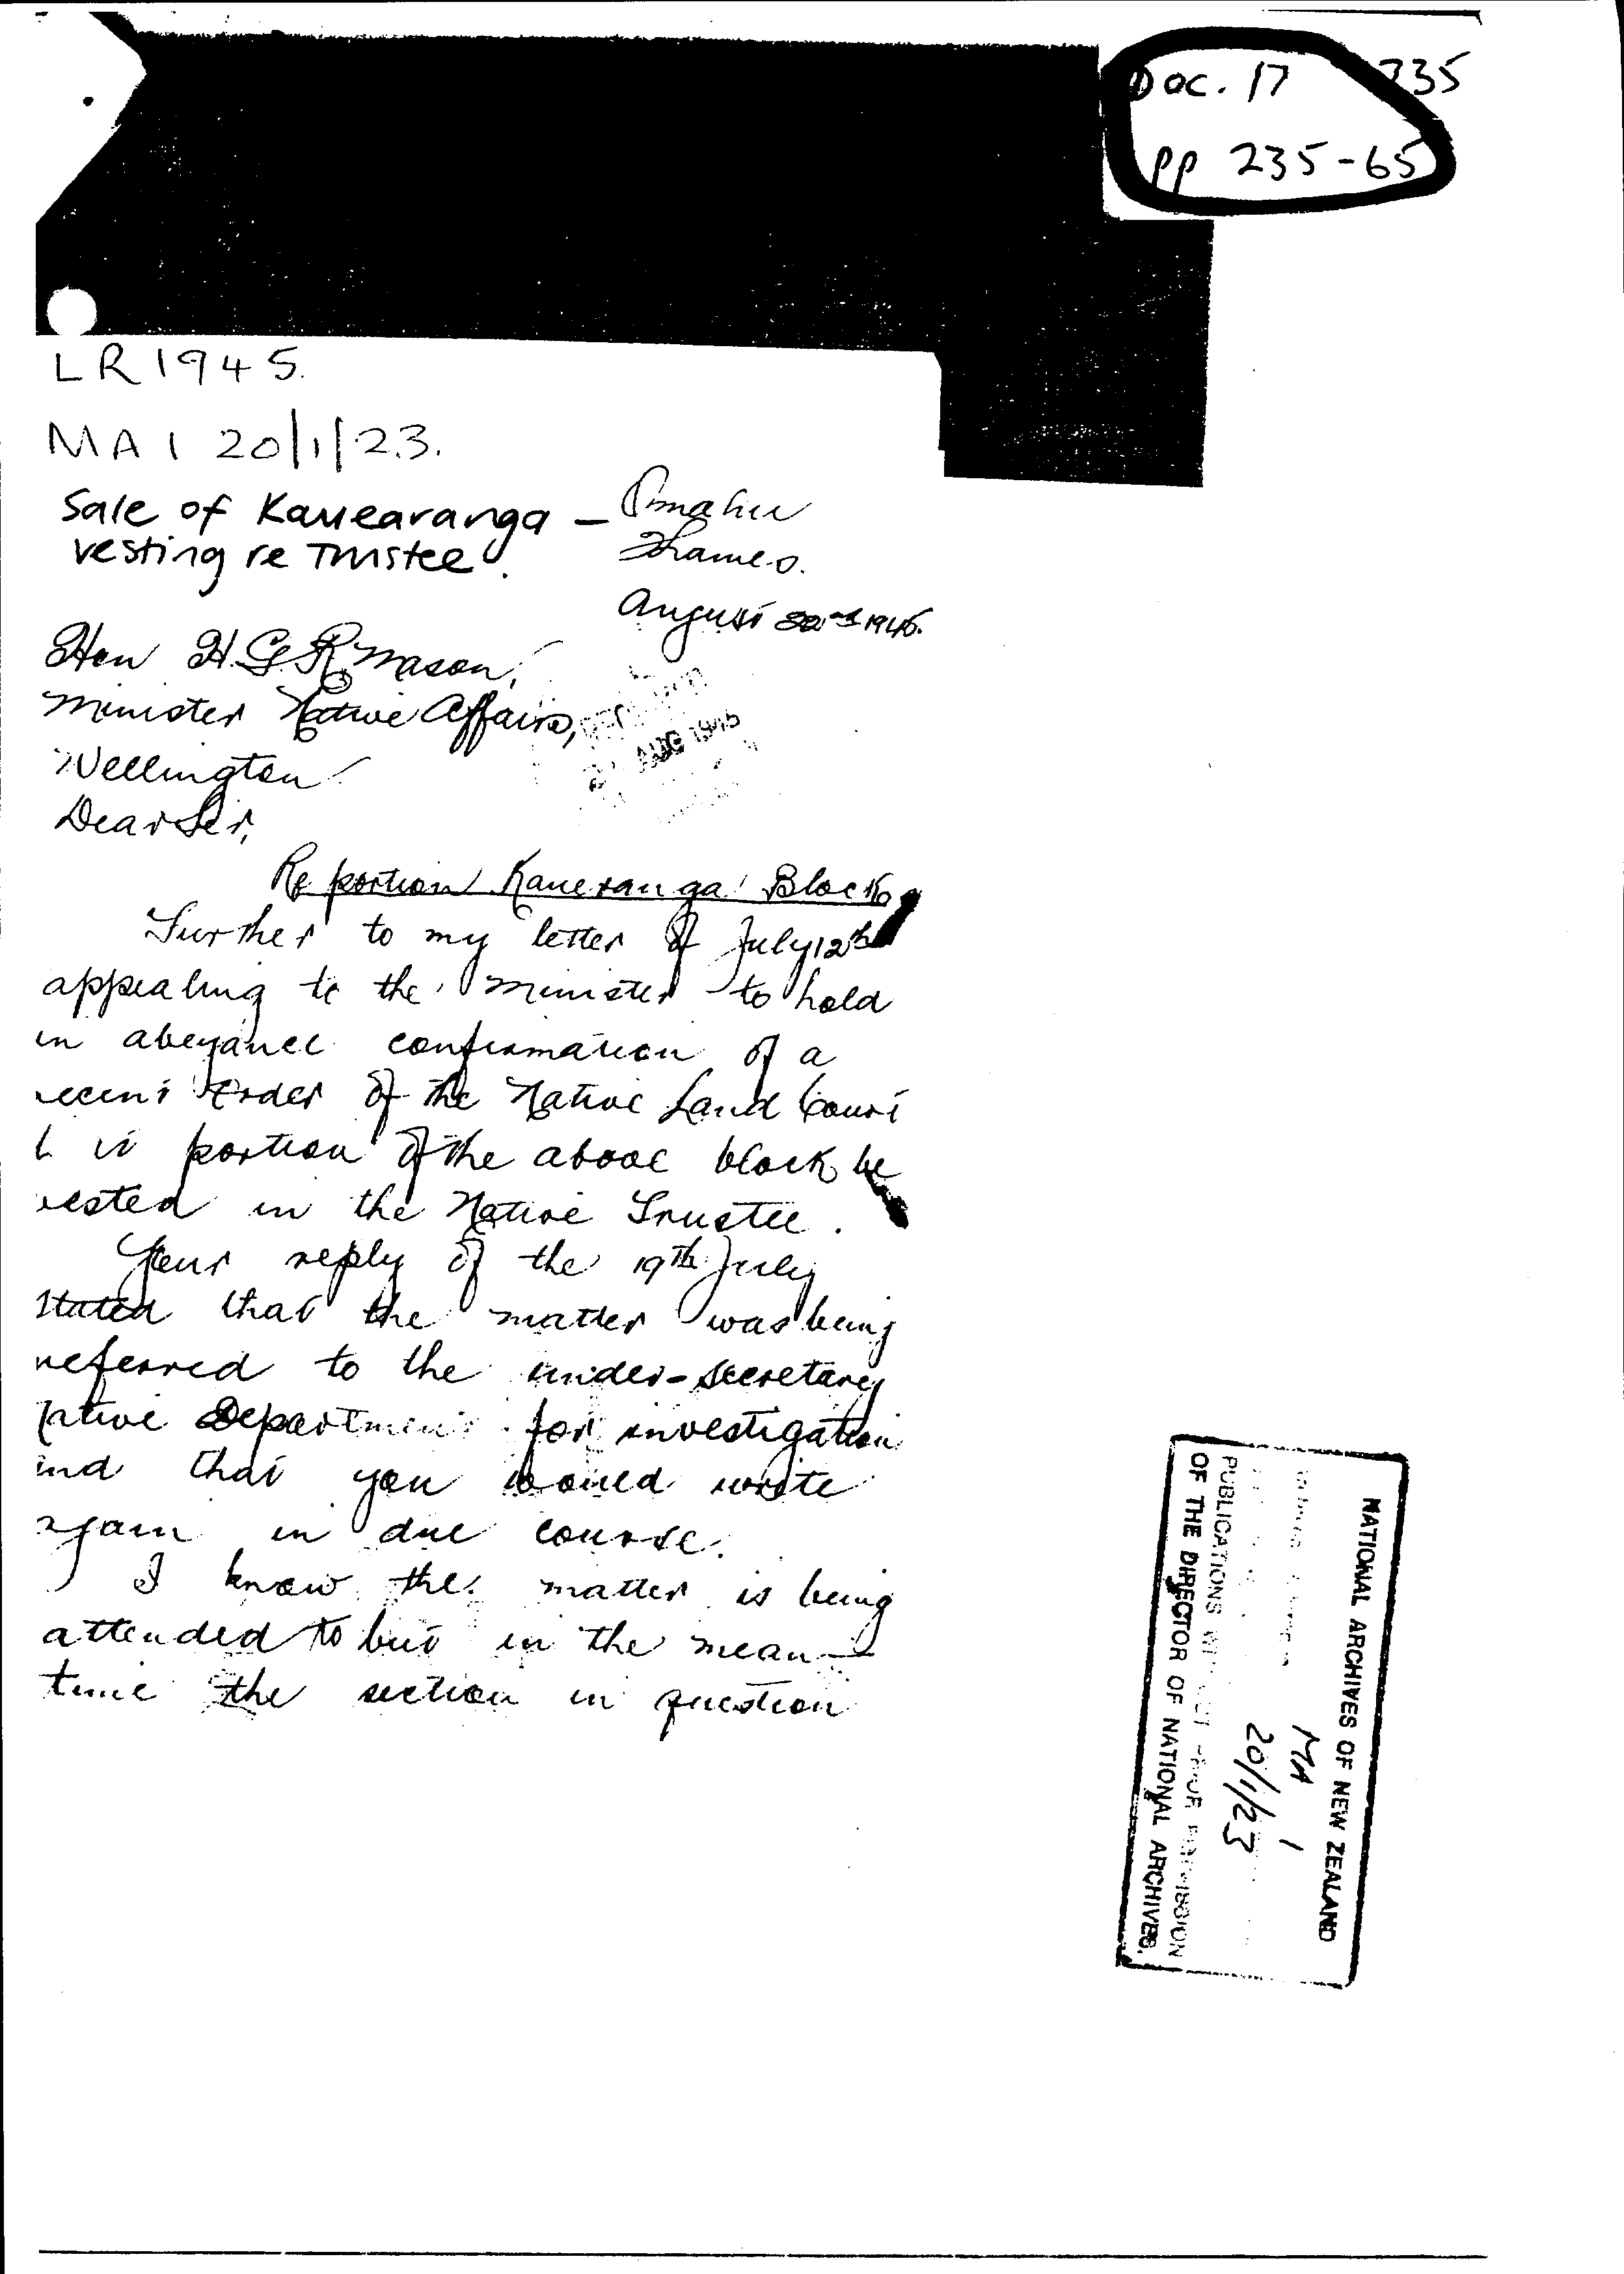 Doc. 17 235
pp 235-65
LR 1945.
MA 1 20/1/23.
Sale of Kauearanga –
vesting re Trustee.
Omahu
Thames.
August 22nd 1945.
Hon H. G. R. Mason,
Minister Native Affairs,
Wellington
AUG 1945
Dear Sir,
Re portion Kaueranga Block
Further to my letter of July 12th
appealing to the Minister to hold
in abeyance confirmation of a
recent order of the Native Land Court
portion of the above block be
vested in the Native Trustee.
Your reply of the 19th July
stated that the matter was being
referred to the under-secretary
Native Department for investigation
and that you would write
again in due course.
I know the matter is being
attended to but in the mean-
time the section in question
NATIONAL ARCHIVES OF NEW ZEALAND
MA 1
20/1/23
PUBLICATIONS PERMISSION
OF THE DIRECTOR OF NATIONAL ARCHIVES.